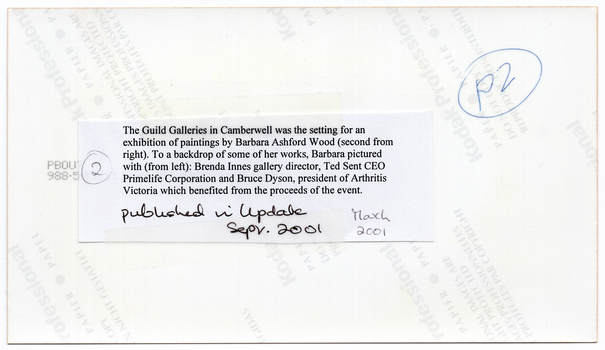 p2
The Guild Galleries in Camberwell was the setting for an
exhibition of paintings by Barbara Ashford Wood (second from
right). To a backdrop of some of her works, Barbara pictured
with (from left): Brenda Innes gallery director, Ted Sent CEO
Primelife Corporation and Bruce Dyson, president of Arthritis
Victoria which benefited from the proceeds of the event.
2
published in Update
Sept. 2001
March
2001
Kodak Professional
PAPIER
PAPER